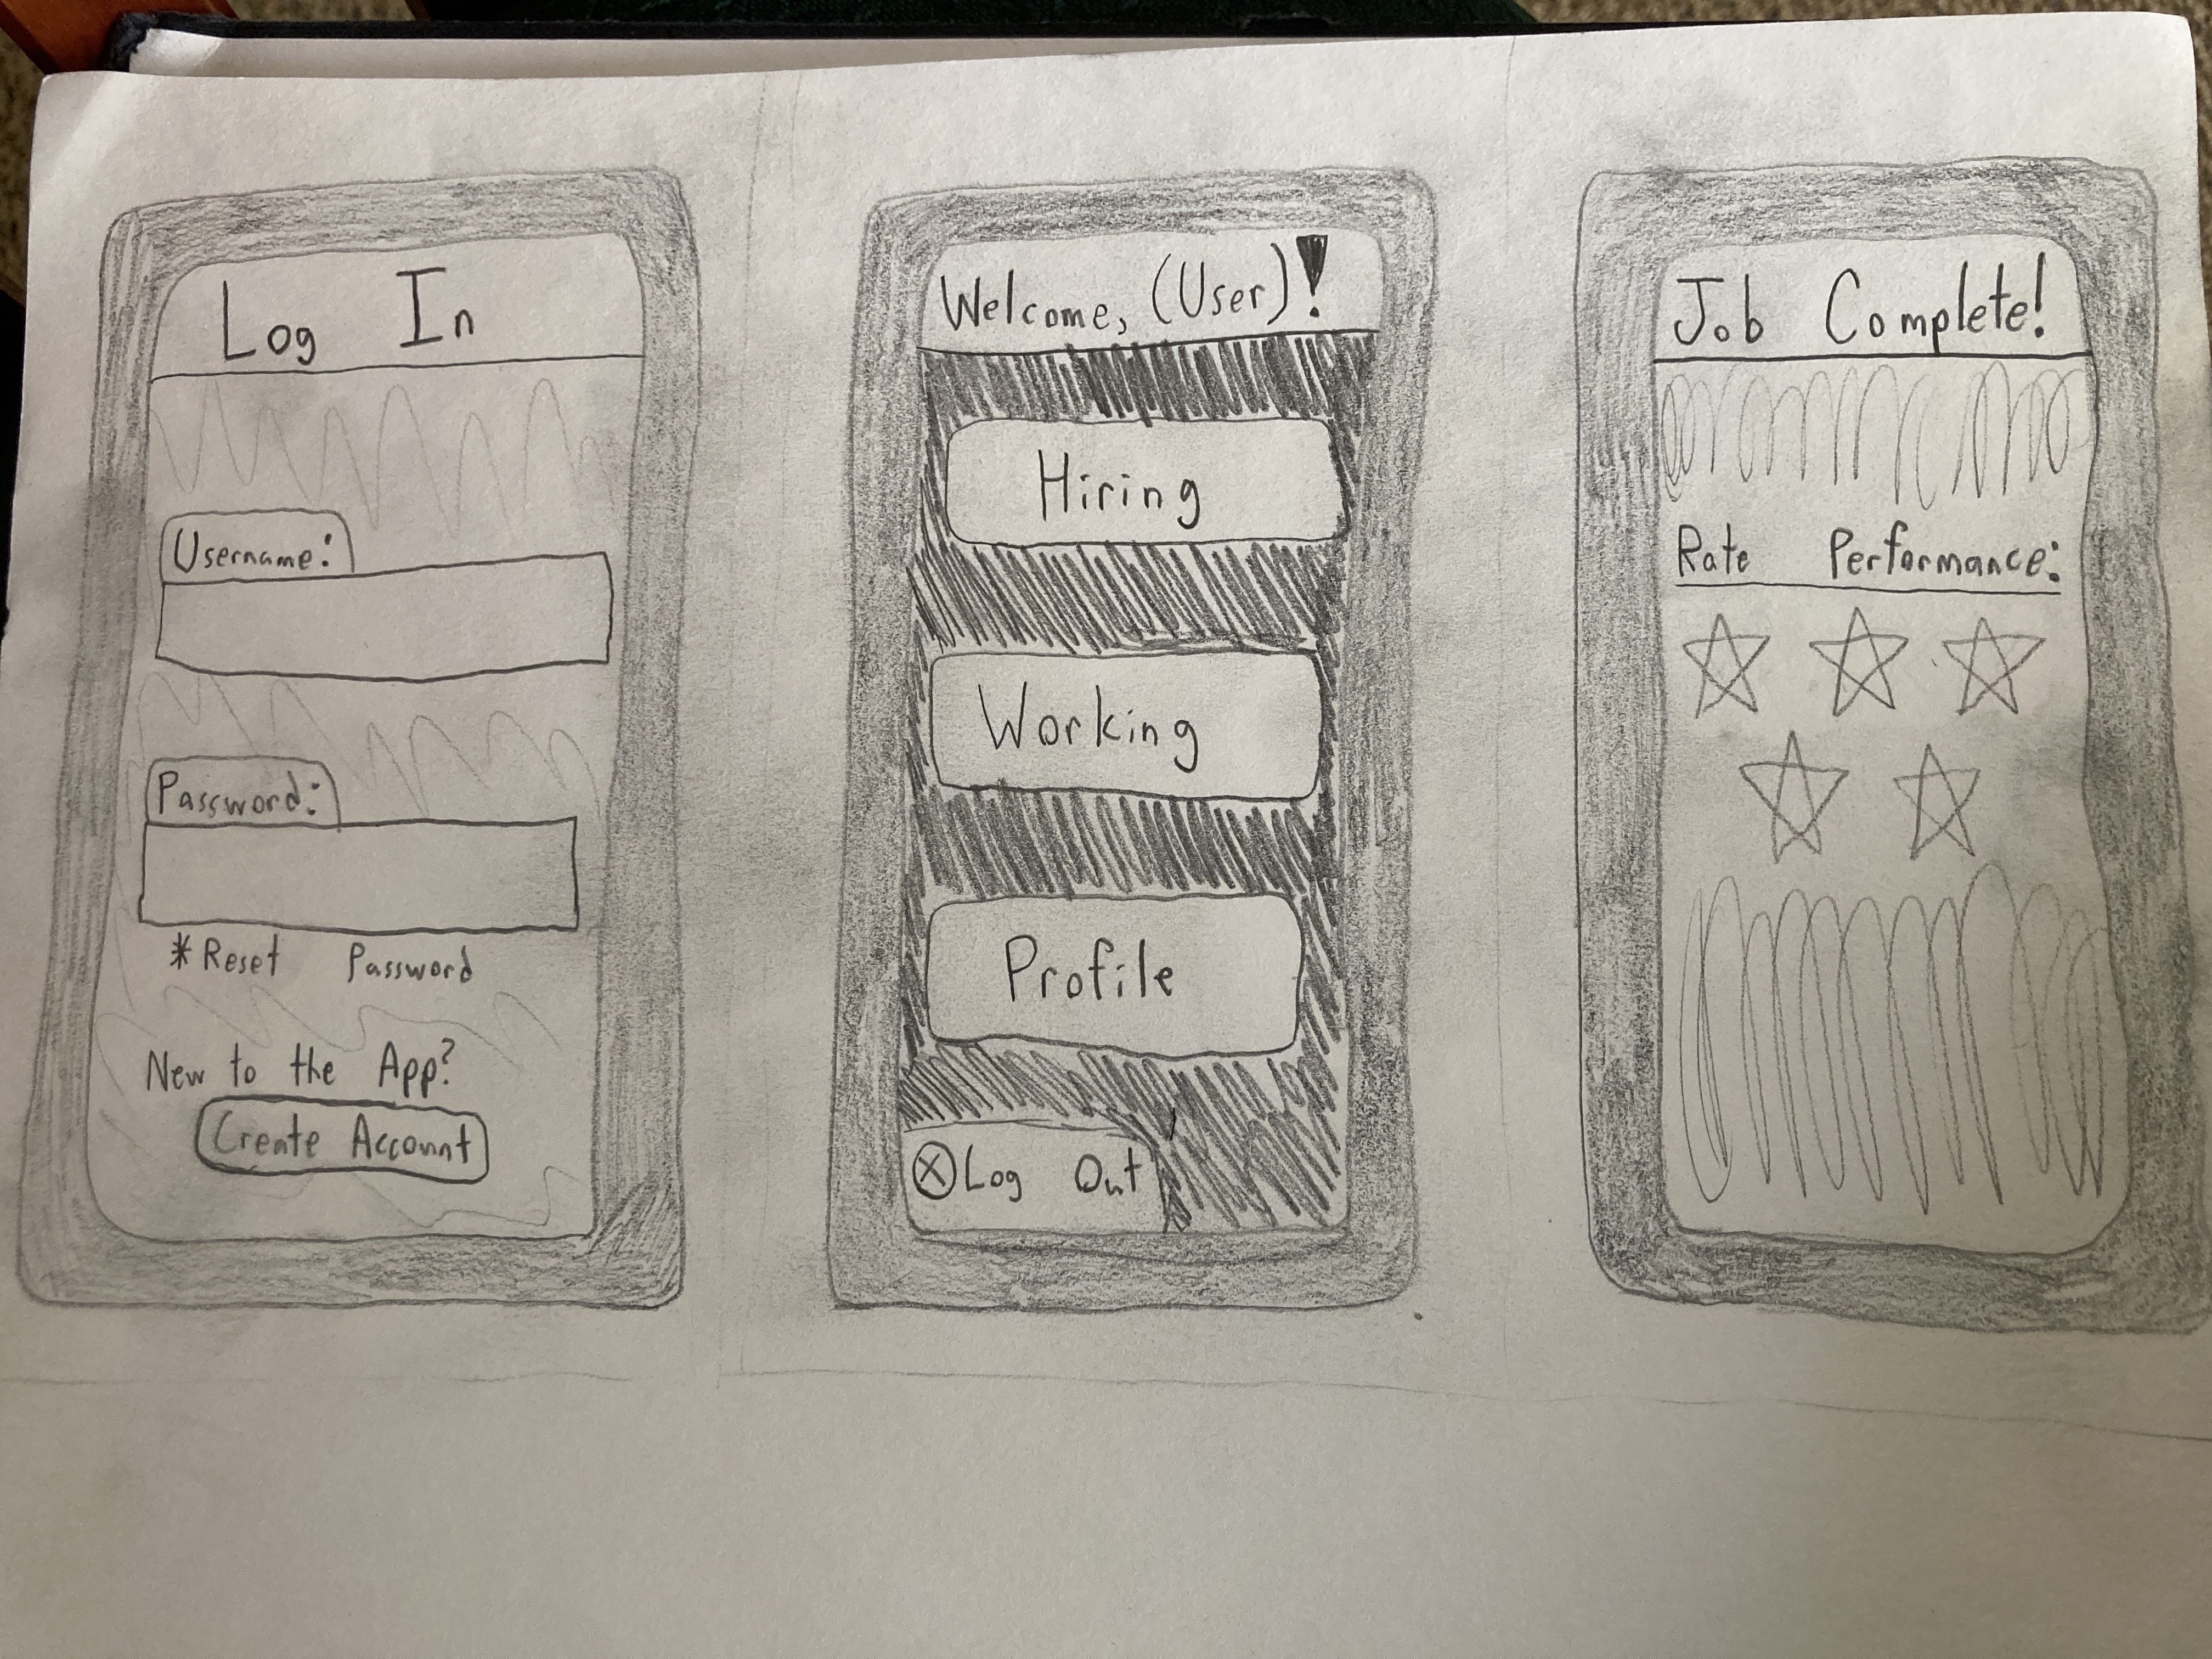 Log In
Username:
Password:
*Reset Password
New to the App?
Create Account
Welcome, (User)!
Hiring
Working
Profile
Log Out
Job Complete!
Rate Performance: